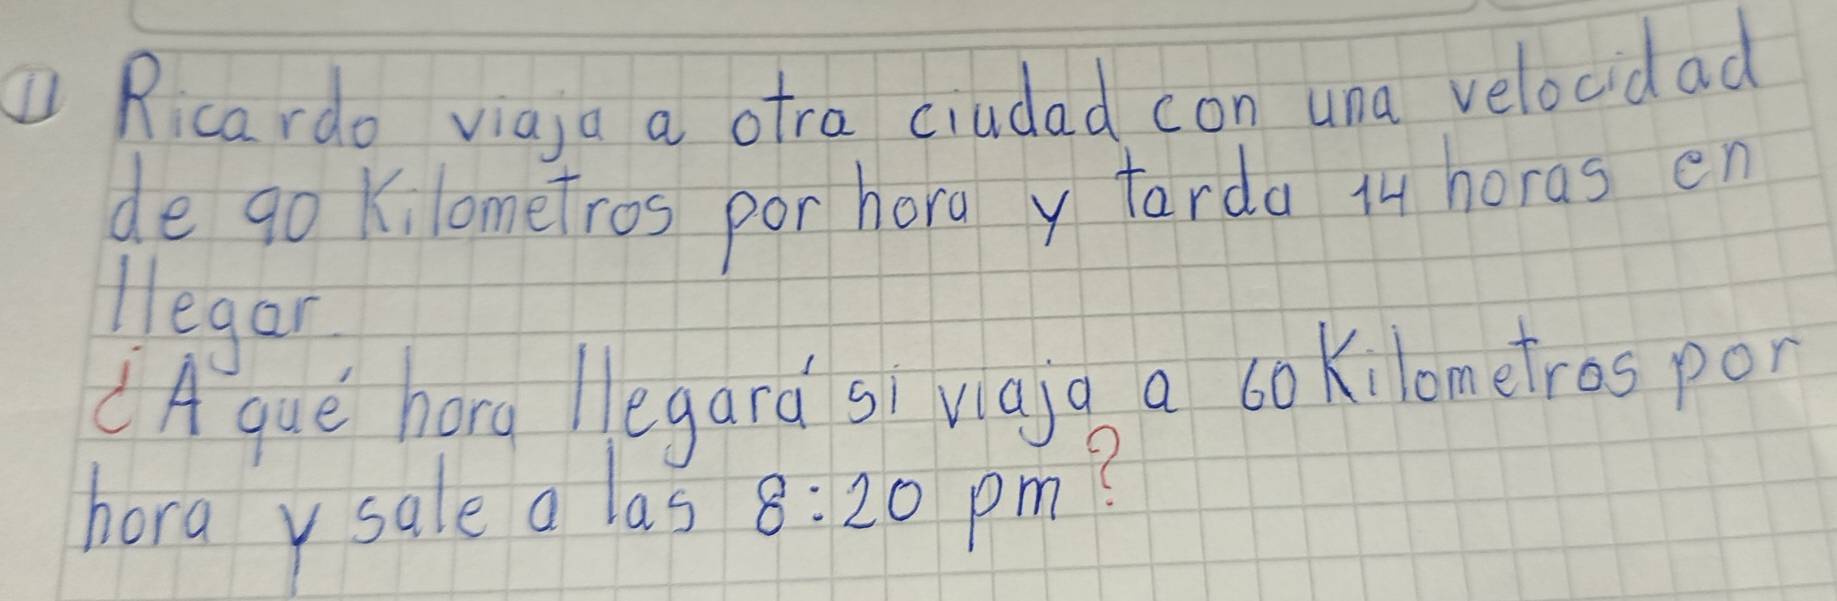 11 Ricardo viaja a otra ciudad con una velocidad
de 90 Kilometros por hora y tarda 14 horas en
llegar.
¿A qué hora llegará si viaja a 60 Kilometros por
hora y sale a las 8:20 pm?